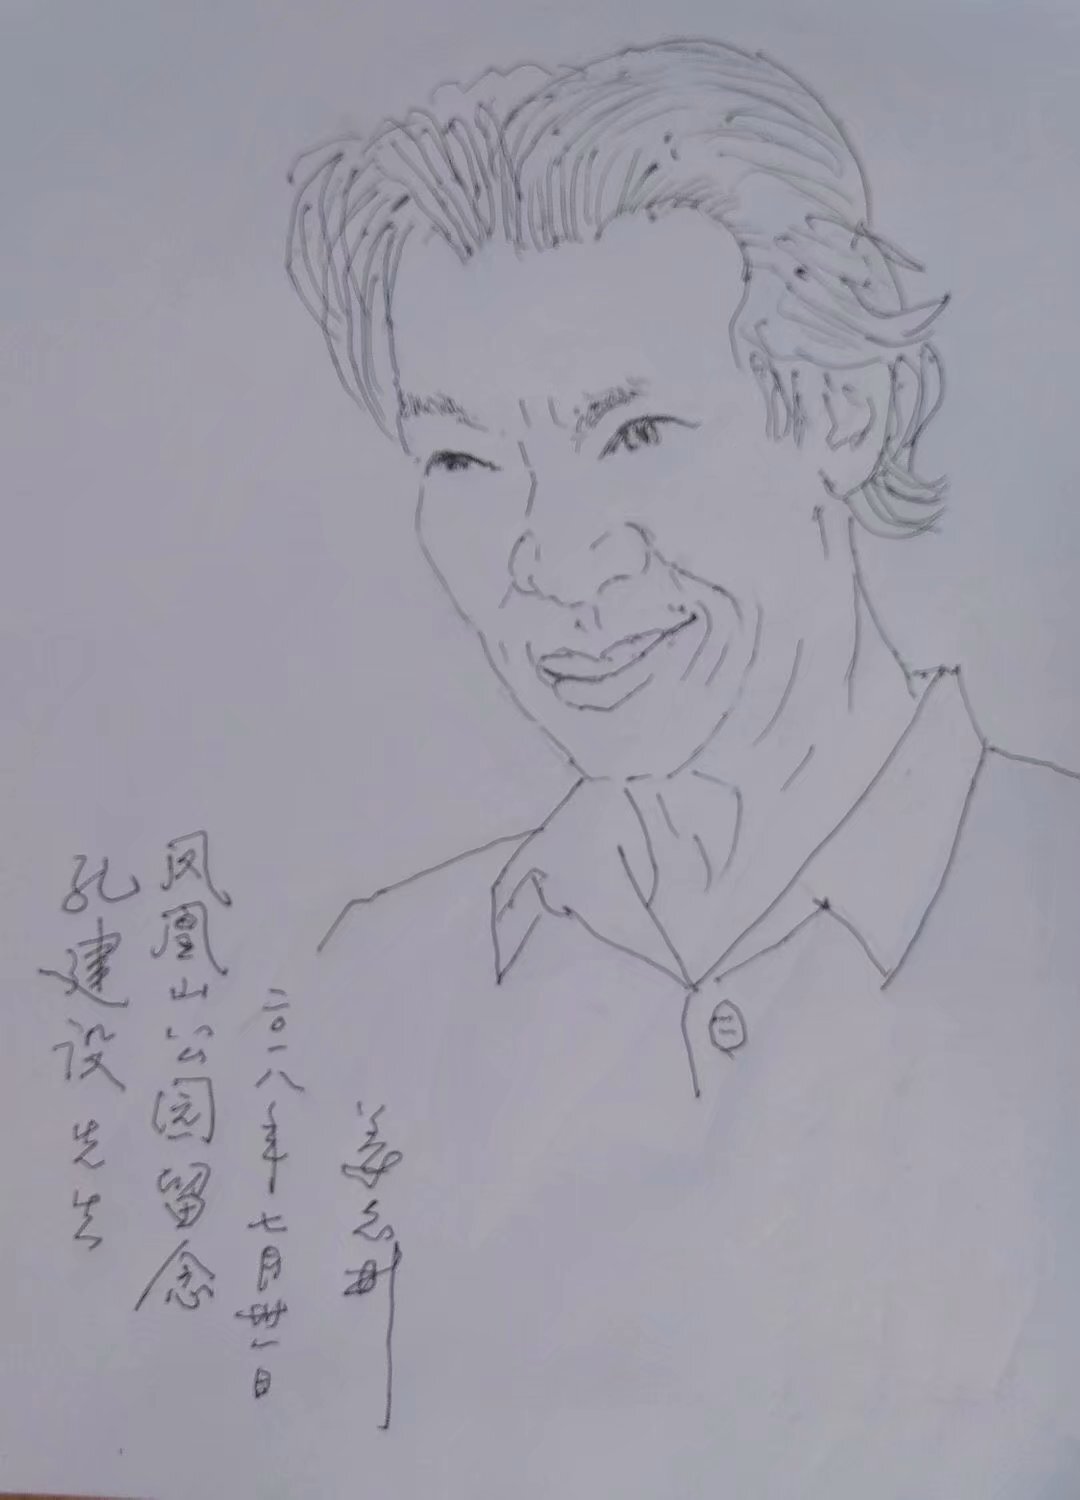 孔建设先生
凤凰山公园留念
二〇一八年七月廿一日
姜